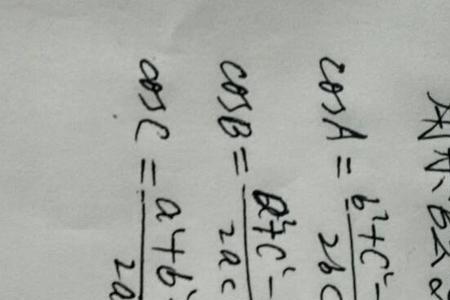 cosA = b²+c²- / 2bc
cosB = a²+c²- / 2ac
cosC = a²+b² / 2a